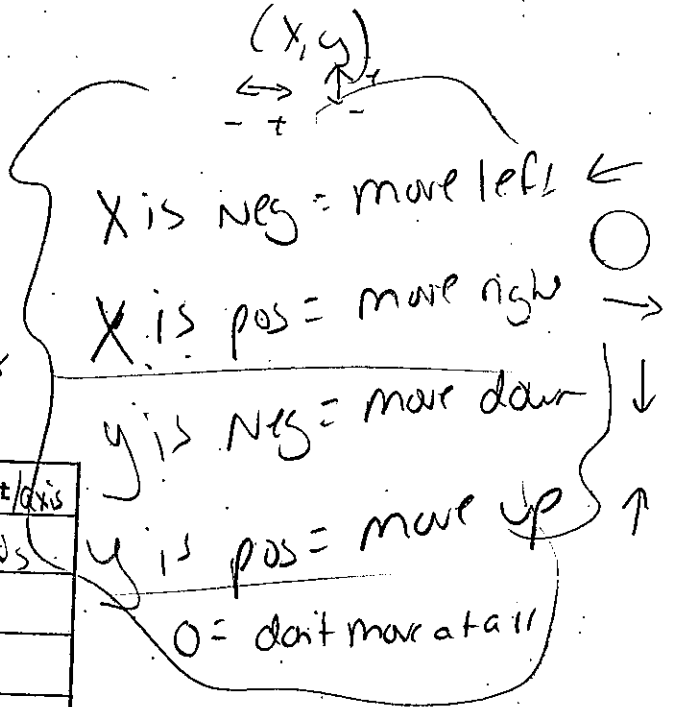 (x, y)
↔ ↕ +
- + -
X is Neg = move left ←
X is pos = move right →
y is Neg = move down ↓
y is pos = move up ↑
0 = don't move at all
t/axis